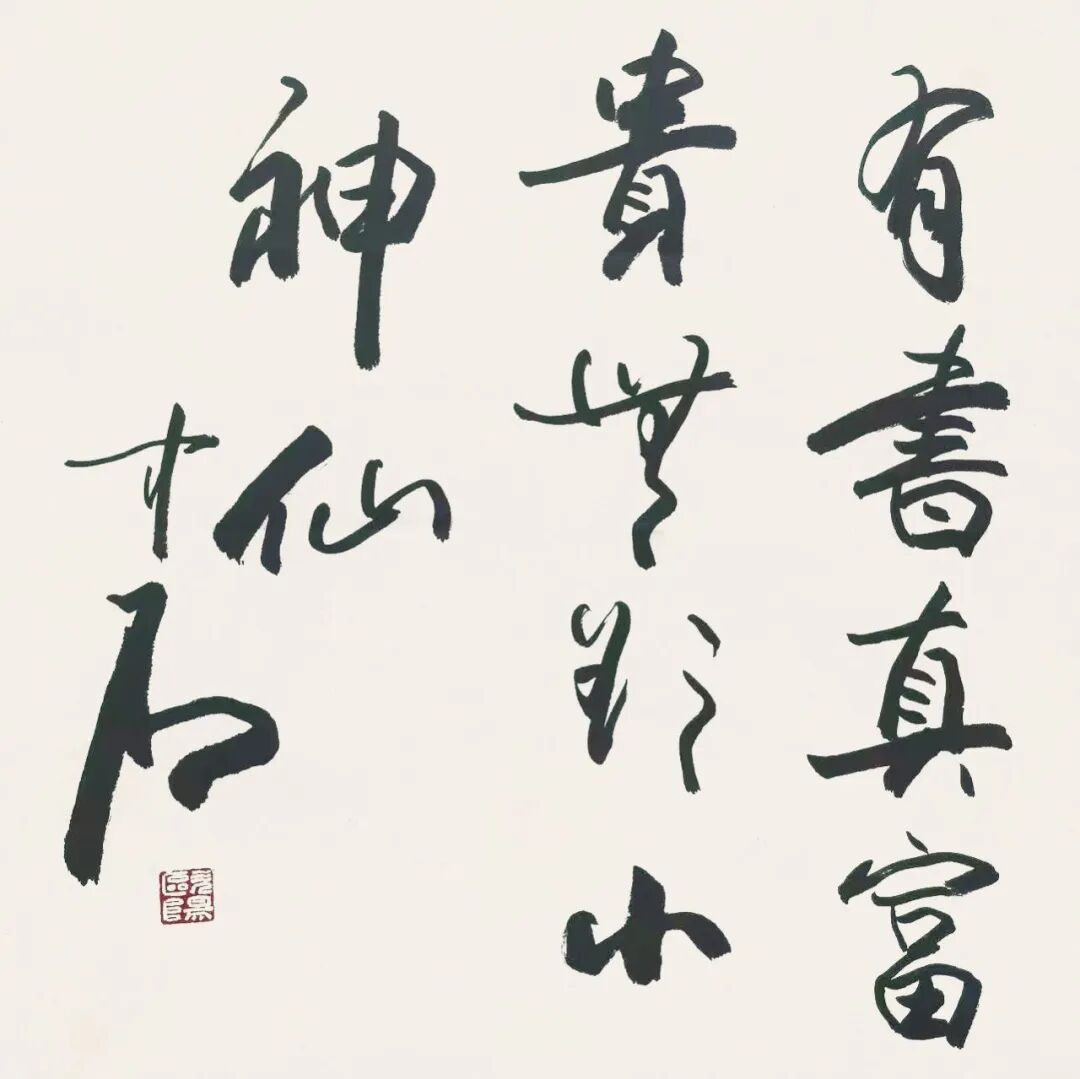 有書真富
貴無小
神仙
中石